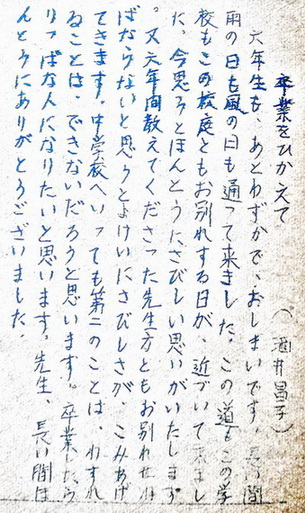 卒業をひかえて (酒井昌子)
六年生も、あとわずかで、おしまいです。長い間
雨の日も風の日も通って来ました。この道もこの学
校もこの校庭ともお別れする日が、近づいて来まし
た。今思うとほんとうにさびしい思いがいたします
。又六年間教えてくださった先生方ともお別れせね
ばならないと思うとよけいにさびしさが、こみあげ
てきます。中学校へいっても第二のことは、わすれ
ることは、できないだろうと思います。卒業したら
りっぱな人になりたいと思います。先生、長い間ほ
んとうにありがとうございました。